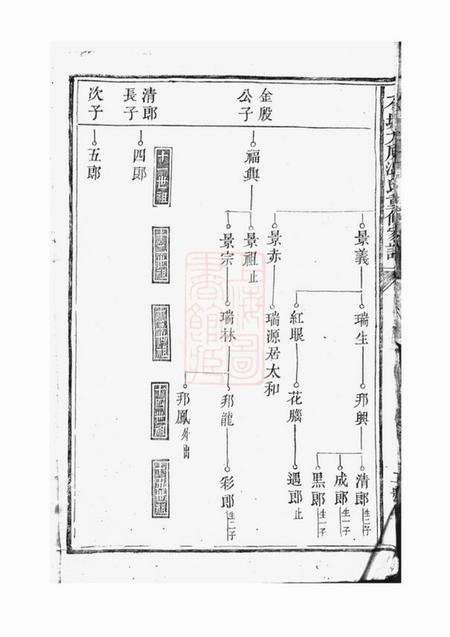 金殷
公子
福興
景義
瑞生
邦興
清郎 生二子
成郎 生一子
黑郎 生一子
紅眼
花腦
遇郎 止
景赤
瑞源居太和
景祖 止
景宗
瑞林
邦龍
彩郎 生二子
邦鳳 外出
十一世祖
十二世祖
十三世祖
十四世祖
十五世祖
清郎
長子
四郎
次子
五郎